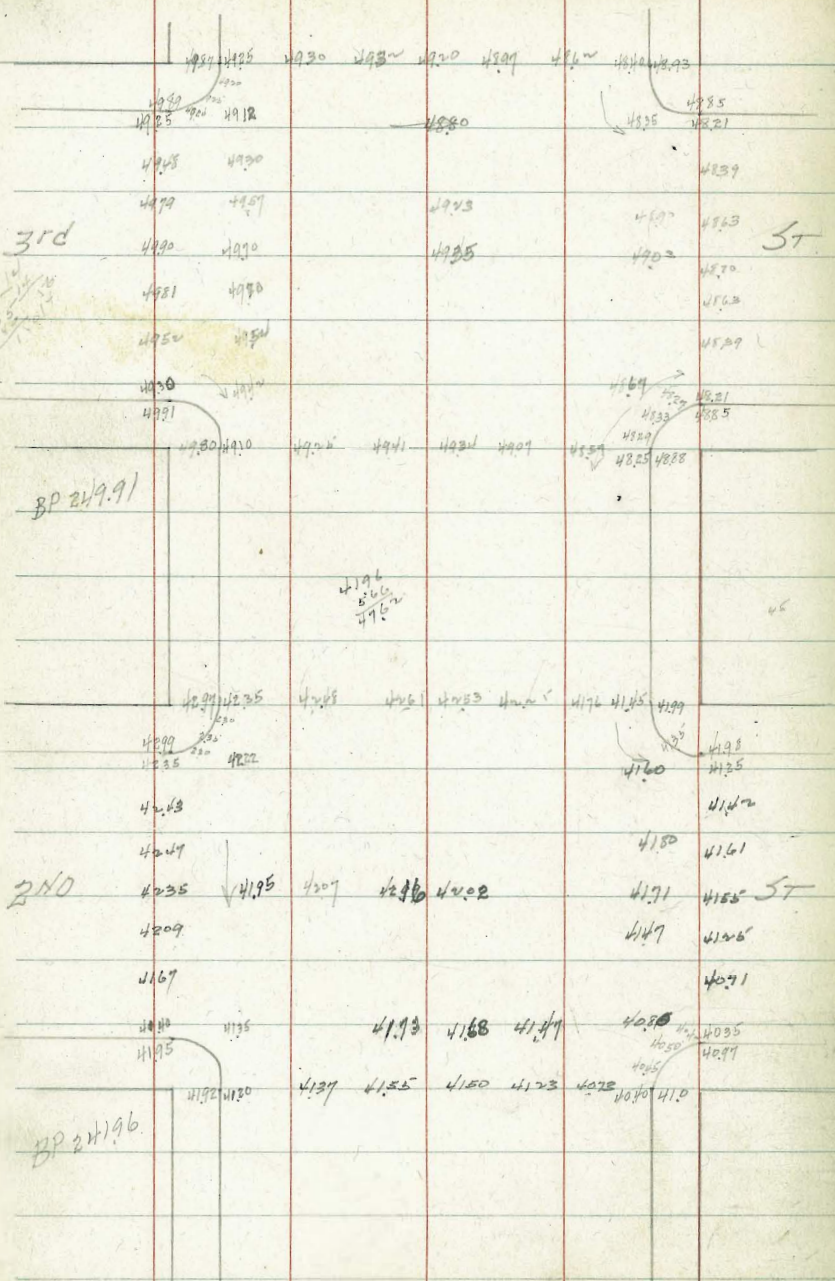 4987 4925 4930 4932 4920 4897 4862 4840 4893
4920
4989 4885
4925 4912 4880 4835 4821
4948 4930 4839
4979 4957 4923 4863
3rd 4990 4970 4935 4903 4870 ST
4981 4980 4863
4952 4952 4839
4930 4942 4867 4827 4821
4991 4833 4885
4829
4980 4910 4925 4941 4934 4907 4859 4825 4888
BP 249.91
4196
566
4762
45
4297 4235 4248 4261 4253 4225 4176 4145 4199
230
4299 235 4135 4198
4235 230 4222 4160 4135
4243 4142
4247 4180 4161
2ND 4235 4195 4207 4202 4171 4155 ST
4209 4147 4125
4167 4071
4140 4135 4173 4168 4147 4086 4035
4195 4050 4097
4045
4192 4120 4137 4155 4150 4123 4073 4040 410
BP 24196